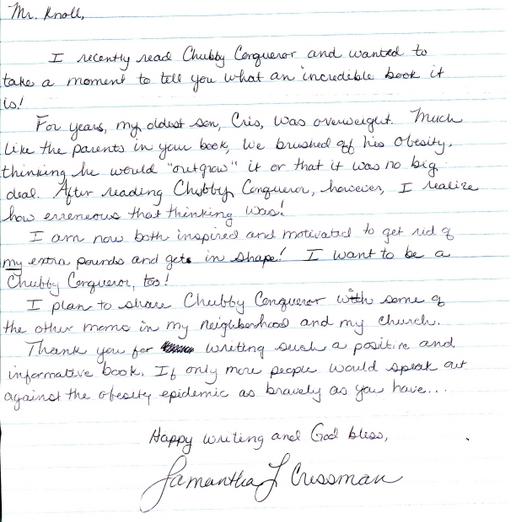 Mr. Knoll,
I recently read Chubby Conqueror and wanted to
take a moment to tell you what an incredible book it
is!
For years, my oldest son, Cris, was overweight. Much
like the parents in your book, we brushed off his obesity,
thinking he would "outgrow" it or that it was no big
deal. After reading Chubby Conqueror, however, I realize
how erroneous that thinking was!
I am now both inspired and motivated to get rid of
my extra pounds and get in shape! I want to be a
Chubby Conqueror, too!
I plan to share Chubby Conqueror with some of
the other moms in my neighborhood and my church.
Thank you for writing such a positive and
informative book. If only more people would speak out
against the obesity epidemic as bravely as you have...
Happy writing and God bless,
Samantha J Cressman